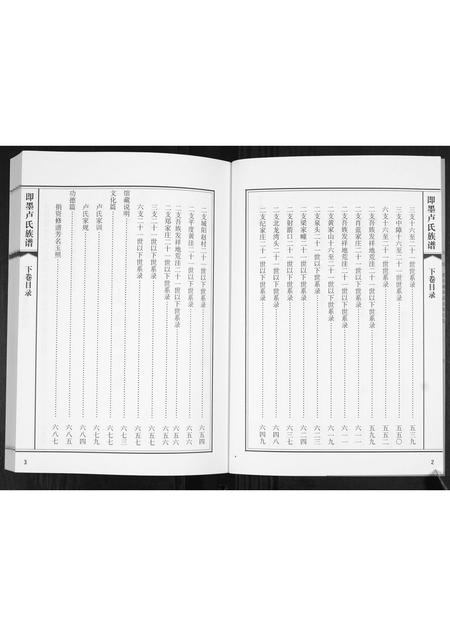 即墨卢氏族谱
下卷目录
2
三支十六至二十一世世系录 五三九
三支中障十六至二十一世世系录 五五〇
六支十六至二十一世世系录 五五二
二支吾族发祥地荒洼二十一世以下世系录 五九九
二支肖蓝家庄二十一世以下世系录 六一一
二支黄家山十六至二十一世以下世系录 六一九
二支泉头二十一世以下世系录 六二三
二支梁家疃二十一世以下世系录 六三一
二支北龙湾头二十一世以下世系录 六四八
二支纪家庄二十一世以下世系录 六四九
二支城阳赵村二十一世以下世系录 六五四
二支平度黄洼二十一世以下世系录 六五五
二支吾族发祥地荒洼二十一世以下世系录 六五六
二支郑家庄二十一世以下世系录 六五六
三支二十一世以下世系录 六五七
六支二十一世以下世系录 六五七
馆藏说明 六七三
文化篇 六七九
卢氏家训 六七九
卢氏家规 六八四
功德篇 六八五
捐资修谱芳名玉照 六八七
即墨卢氏族谱
下卷目录
3